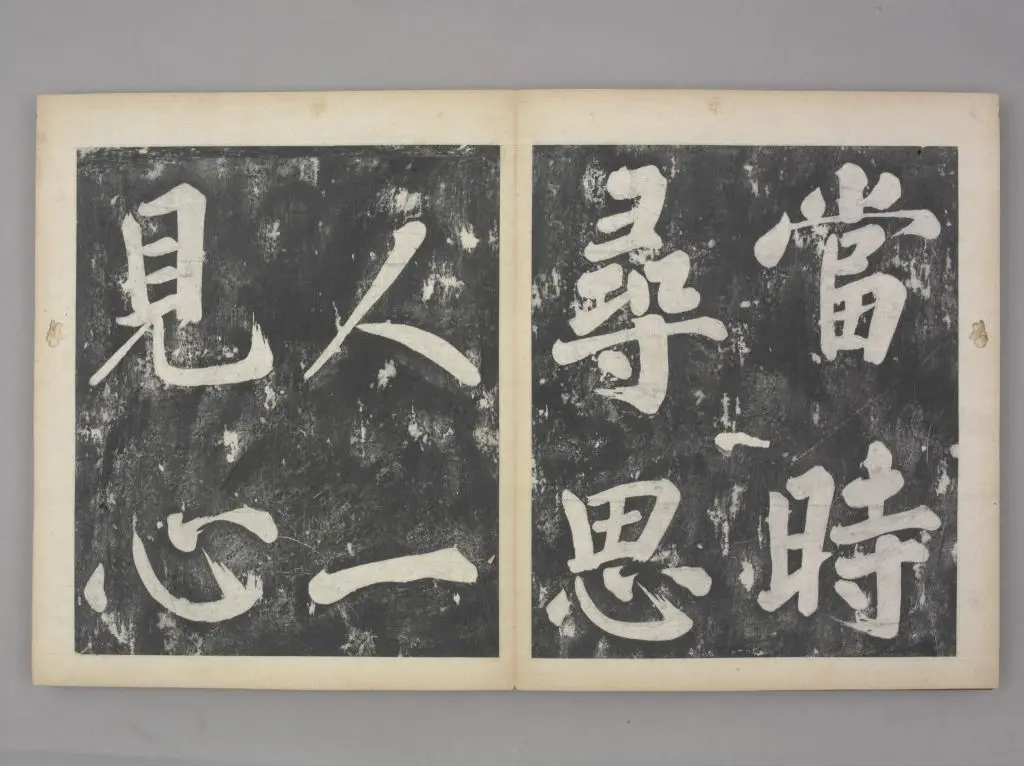 當時
尋思
人一
見心